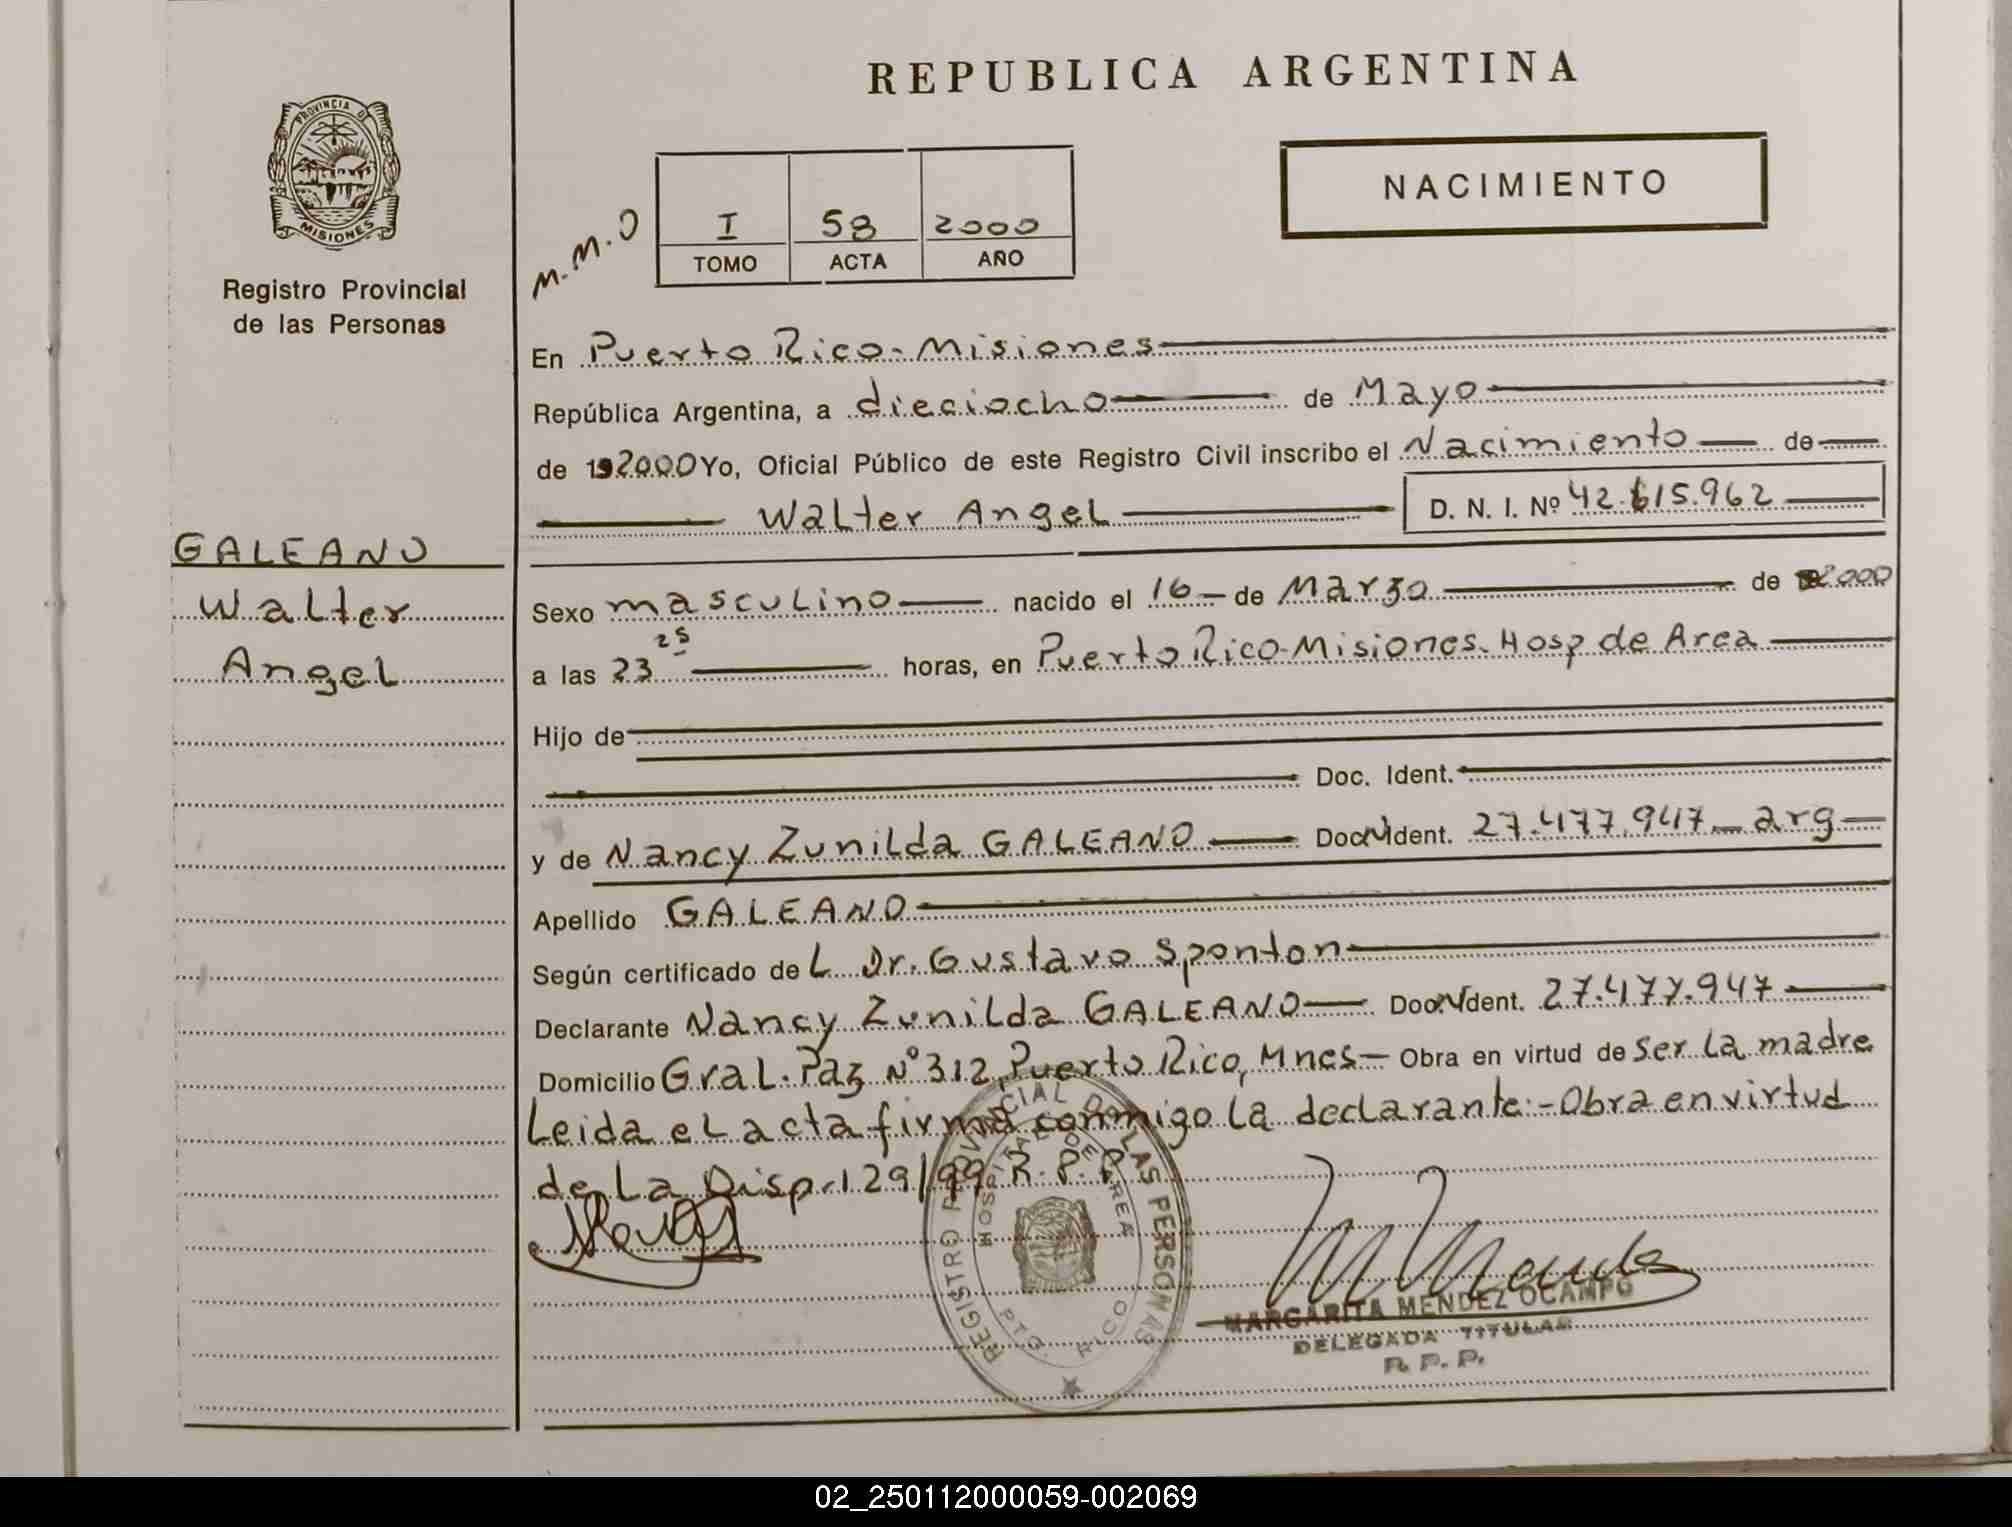 REPUBLICA ARGENTINA
PROVINCIA D
MISIONES
Registro Provincial
de las Personas
NACIMIENTO
M.M.O
I 58 2000
TOMO ACTA AÑO
En Puerto Rico-Misiones
República Argentina, a dieciocho de Mayo
de 192000 Yo, Oficial Público de este Registro Civil inscribo el Nacimiento de
Walter Angel D. N. I. Nº 42.615.962
GALEANO
Walter
Angel
Sexo masculino nacido el 16 de Marzo de 2000
a las 23 25 horas, en Puerto Rico-Misiones. Hosp de Area
Hijo de
Doc. Ident.
y de Nancy Zunilda GALEANO Doc N Ident. 27.477.947 arg
Apellido GALEANO
Según certificado de L Dr. Gustavo Sponton
Declarante Nancy Zunilda GALEANO Doc N Ident. 27.477.947
Domicilio Gral. Paz Nº 312, Puerto Rico, Mnes- Obra en virtud de ser la madre
Leida el acta firma conmigo la declarante.-Obra en virtud
de la Disp. 129/99 R.P.P.
REGISTRO PROVINCIAL DE LAS PERSONAS
HOSPITAL DE AREA
PTO. RICO
MARGARITA MENDEZ OCAMPO
DELEGADA TITULAR
R. P. P.
02_250112000059-002069